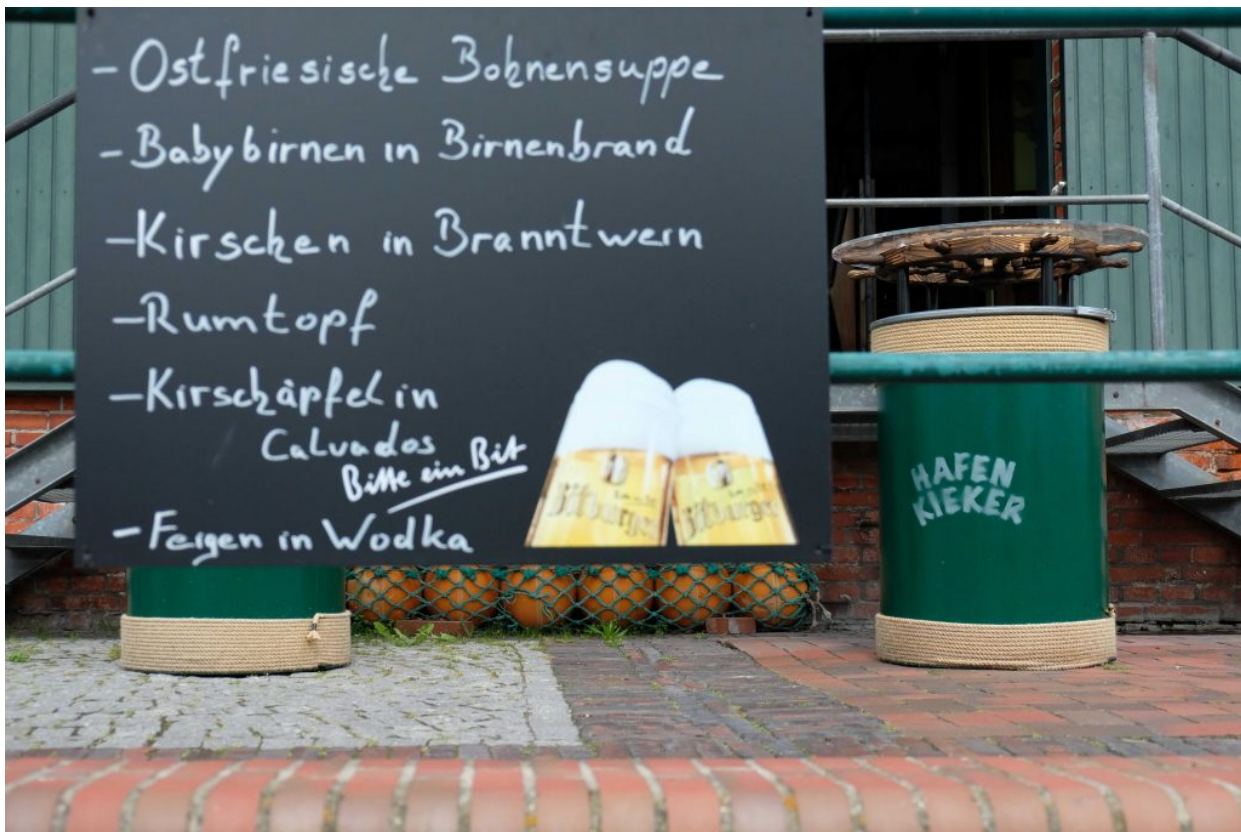 - Ostfriesische Bohnensuppe
- Babybirnen in Birnenbrand
- Kirschen in Branntwein
- Rumtopf
- Kirschäpfel in
Calvados
Bitte ein Bit
- Feigen in Wodka
Bitburger
Bitburger
HAFEN
KIEKER